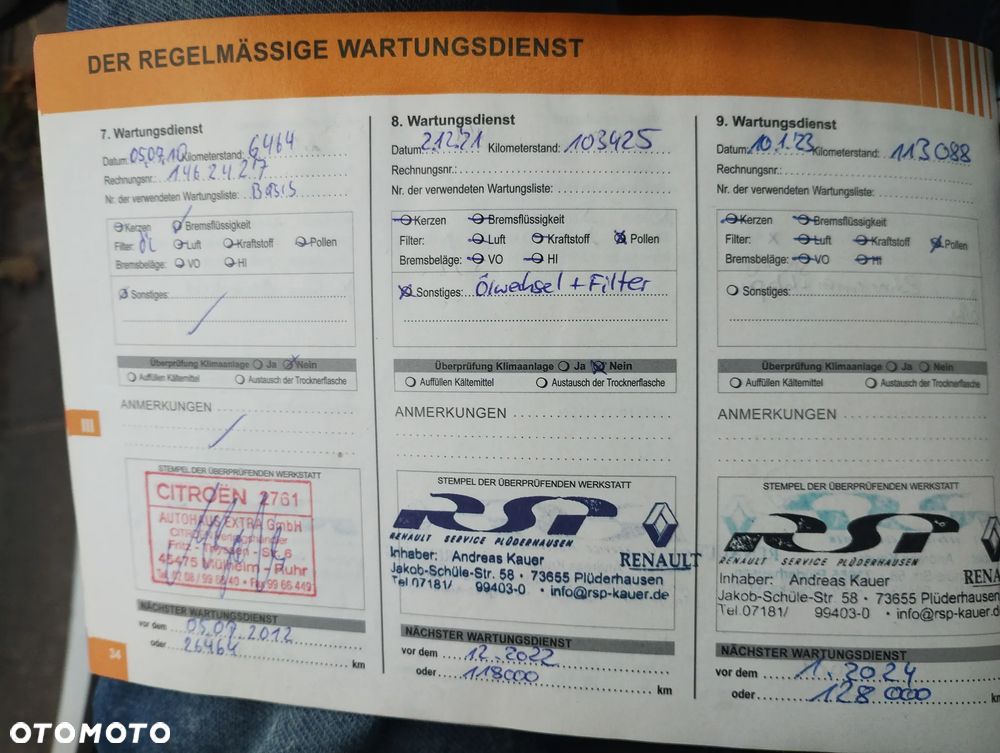 DER REGELMÄSSIGE WARTUNGSDIENST
7. Wartungsdienst
Datum: 05.07.10 Kilometerstand: 6464
Rechnungsnr.: 146 24 2 17
Nr. der verwendeten Wartungsliste: Basis
Kerzen Bremsflüssigkeit
Filter: Öl Luft Kraftstoff Pollen
Bremsbeläge: VO HI
Sonstiges:
Überprüfung Klimaanlage Ja Nein
Auffüllen Kältemittel Austausch der Trocknerflasche
ANMERKUNGEN
STEMPEL DER ÜBERPRÜFENDEN WERKSTATT
CITROËN 2761
AUTOHAUS EXTRA GmbH
Fritz - Thyssen - Str. 6
45475 Mülheim - Ruhr
Tel. 02 08 / 99 66 40 • Fax 99 66 449
NÄCHSTER WARTUNGSDIENST
vor dem 05.07.2012
oder 26464 km
8. Wartungsdienst
Datum 2.12.21 Kilometerstand: 103425
Rechnungsnr.:
Nr. der verwendeten Wartungsliste:
Kerzen Bremsflüssigkeit
Filter: Luft Kraftstoff Pollen
Bremsbeläge: VO HI
Sonstiges: Ölwechsel + Filter
Überprüfung Klimaanlage Ja Nein
Auffüllen Kältemittel Austausch der Trocknerflasche
ANMERKUNGEN
STEMPEL DER ÜBERPRÜFENDEN WERKSTATT
RSP
RENAULT SERVICE PLÜDERHAUSEN
RENAULT
Inhaber: Andreas Kauer
Jakob-Schüle-Str. 58 • 73655 Plüderhausen
Tel 07181/ 99403-0 • info@rsp-kauer.de
NÄCHSTER WARTUNGSDIENST
vor dem 12.2022
oder 118000 km
9. Wartungsdienst
Datum: 10.1.23 Kilometerstand: 113088
Rechnungsnr.:
Nr. der verwendeten Wartungsliste:
Kerzen Bremsflüssigkeit
Filter: Luft Kraftstoff Pollen
Bremsbeläge: VO HI
Sonstiges:
Überprüfung Klimaanlage Ja Nein
Auffüllen Kältemittel Austausch der Trocknerflasche
ANMERKUNGEN
STEMPEL DER ÜBERPRÜFENDEN WERKSTATT
RSP
RENAULT SERVICE PLÜDERHAUSEN
RENA
Inhaber: Andreas Kauer
Jakob-Schüle-Str. 58 • 73655 Plüderhausen
Tel 07181/ 99403-0 • info@rsp-kauer.d
NÄCHSTER WARTUNGSDIENST
vor dem 1.2024
oder 128000 km
III
34
OTOMOTO